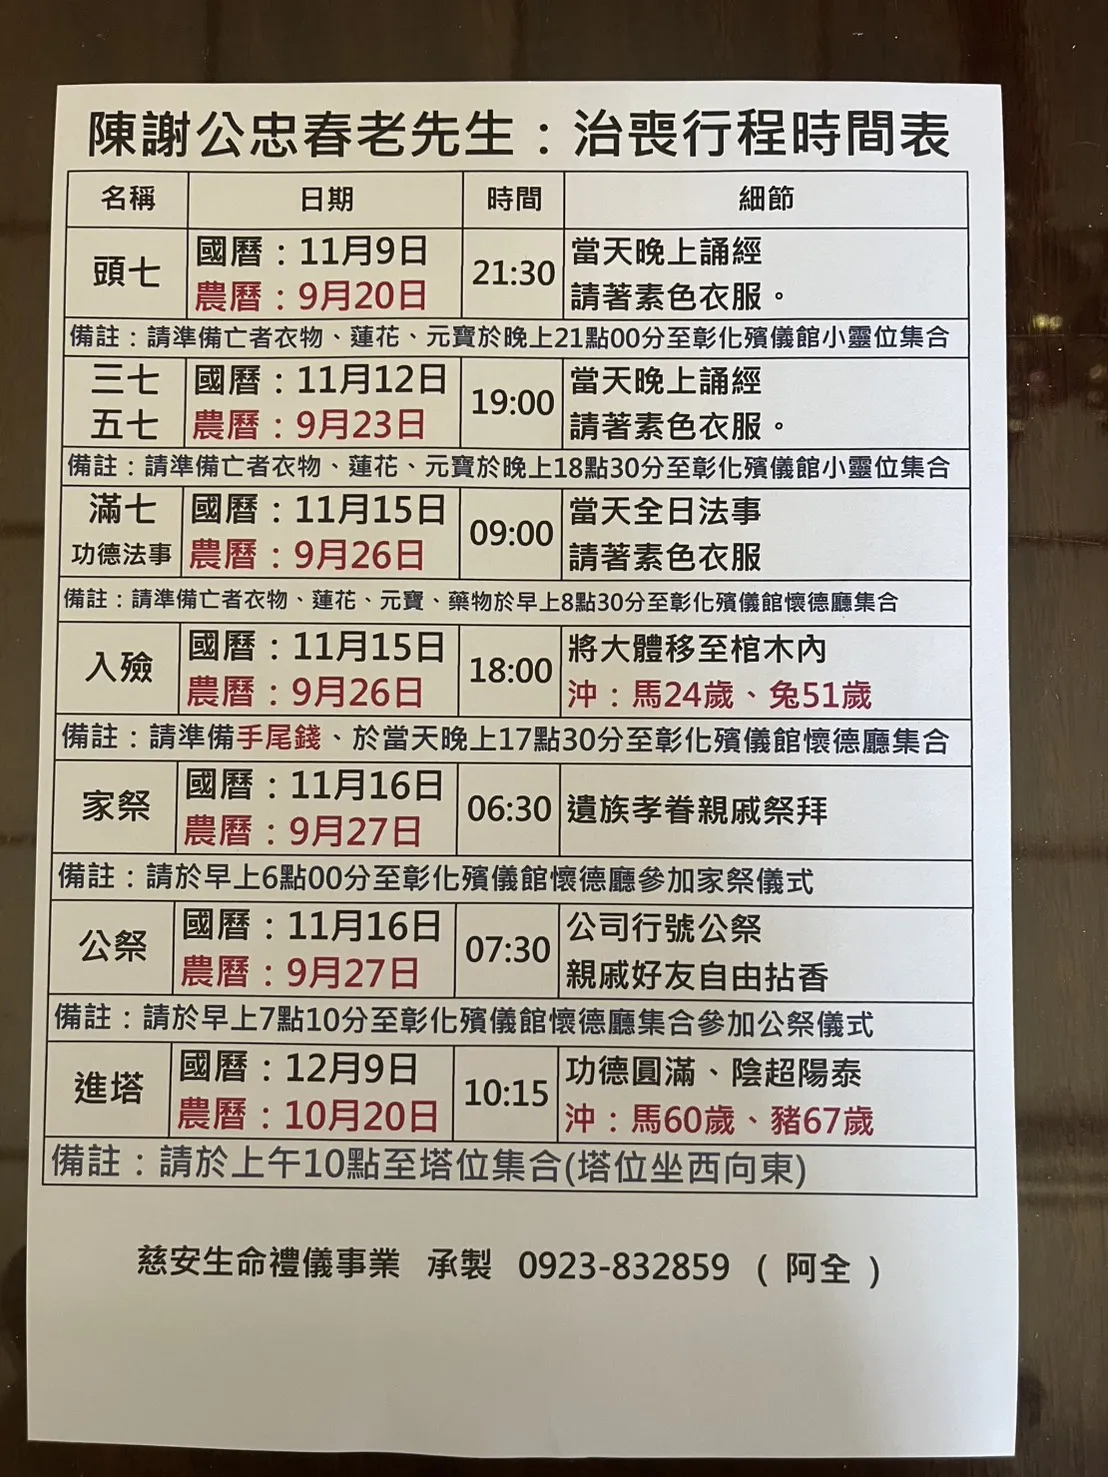 陳謝公忠春老先生：治喪行程時間表
名稱 日期 時間 細節
頭七 國曆：11月9日 農曆：9月20日 21:30 當天晚上誦經 請著素色衣服。
備註：請準備亡者衣物、蓮花、元寶於晚上21點00分至彰化殯儀館小靈位集合
三七 五七 國曆：11月12日 農曆：9月23日 19:00 當天晚上誦經 請著素色衣服。
備註：請準備亡者衣物、蓮花、元寶於晚上18點30分至彰化殯儀館小靈位集合
滿七 功德法事 國曆：11月15日 農曆：9月26日 09:00 當天全日法事 請著素色衣服
備註：請準備亡者衣物、蓮花、元寶、藥物於早上8點30分至彰化殯儀館懷德廳集合
入殮 國曆：11月15日 農曆：9月26日 18:00 將大體移至棺木內 沖：馬24歲、兔51歲
備註：請準備手尾錢、於當天晚上17點30分至彰化殯儀館懷德廳集合
家祭 國曆：11月16日 農曆：9月27日 06:30 遺族孝眷親戚祭拜
備註：請於早上6點00分至彰化殯儀館懷德廳參加家祭儀式
公祭 國曆：11月16日 農曆：9月27日 07:30 公司行號公祭 親戚好友自由拈香
備註：請於早上7點10分至彰化殯儀館懷德廳集合參加公祭儀式
進塔 國曆：12月9日 農曆：10月20日 10:15 功德圓滿、陰超陽泰 沖：馬60歲、豬67歲
備註：請於上午10點至塔位集合(塔位坐西向東)
慈安生命禮儀事業 承製 0923-832859 ( 阿全 )